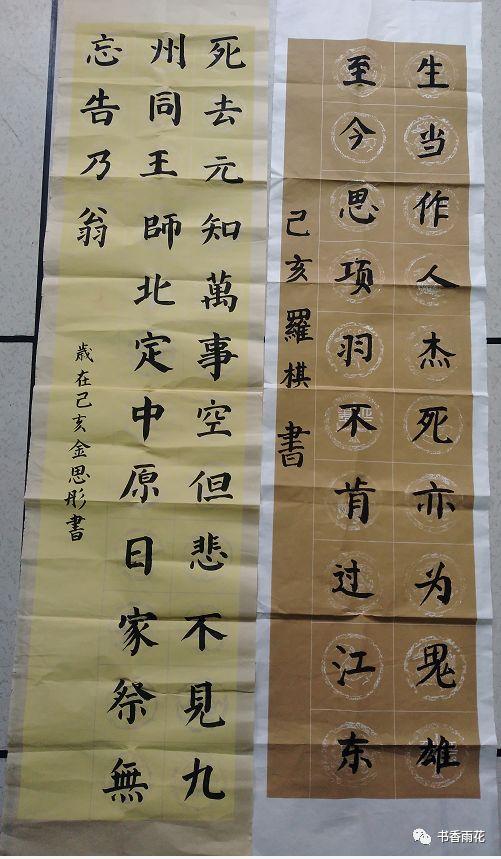 生当作人杰死亦为鬼雄
至今思项羽不肯过江东
己亥羅棋書
死去元知萬事空但悲不見九
州同王師北定中原日家祭無
忘告乃翁
歳在己亥金思彤書
书香雨花